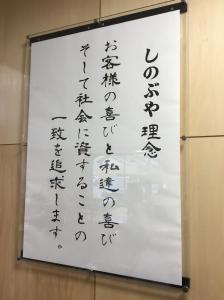 しのぶや 理念
お客様の喜びと私達の喜び
そして社会に資することの
一致を追求します。